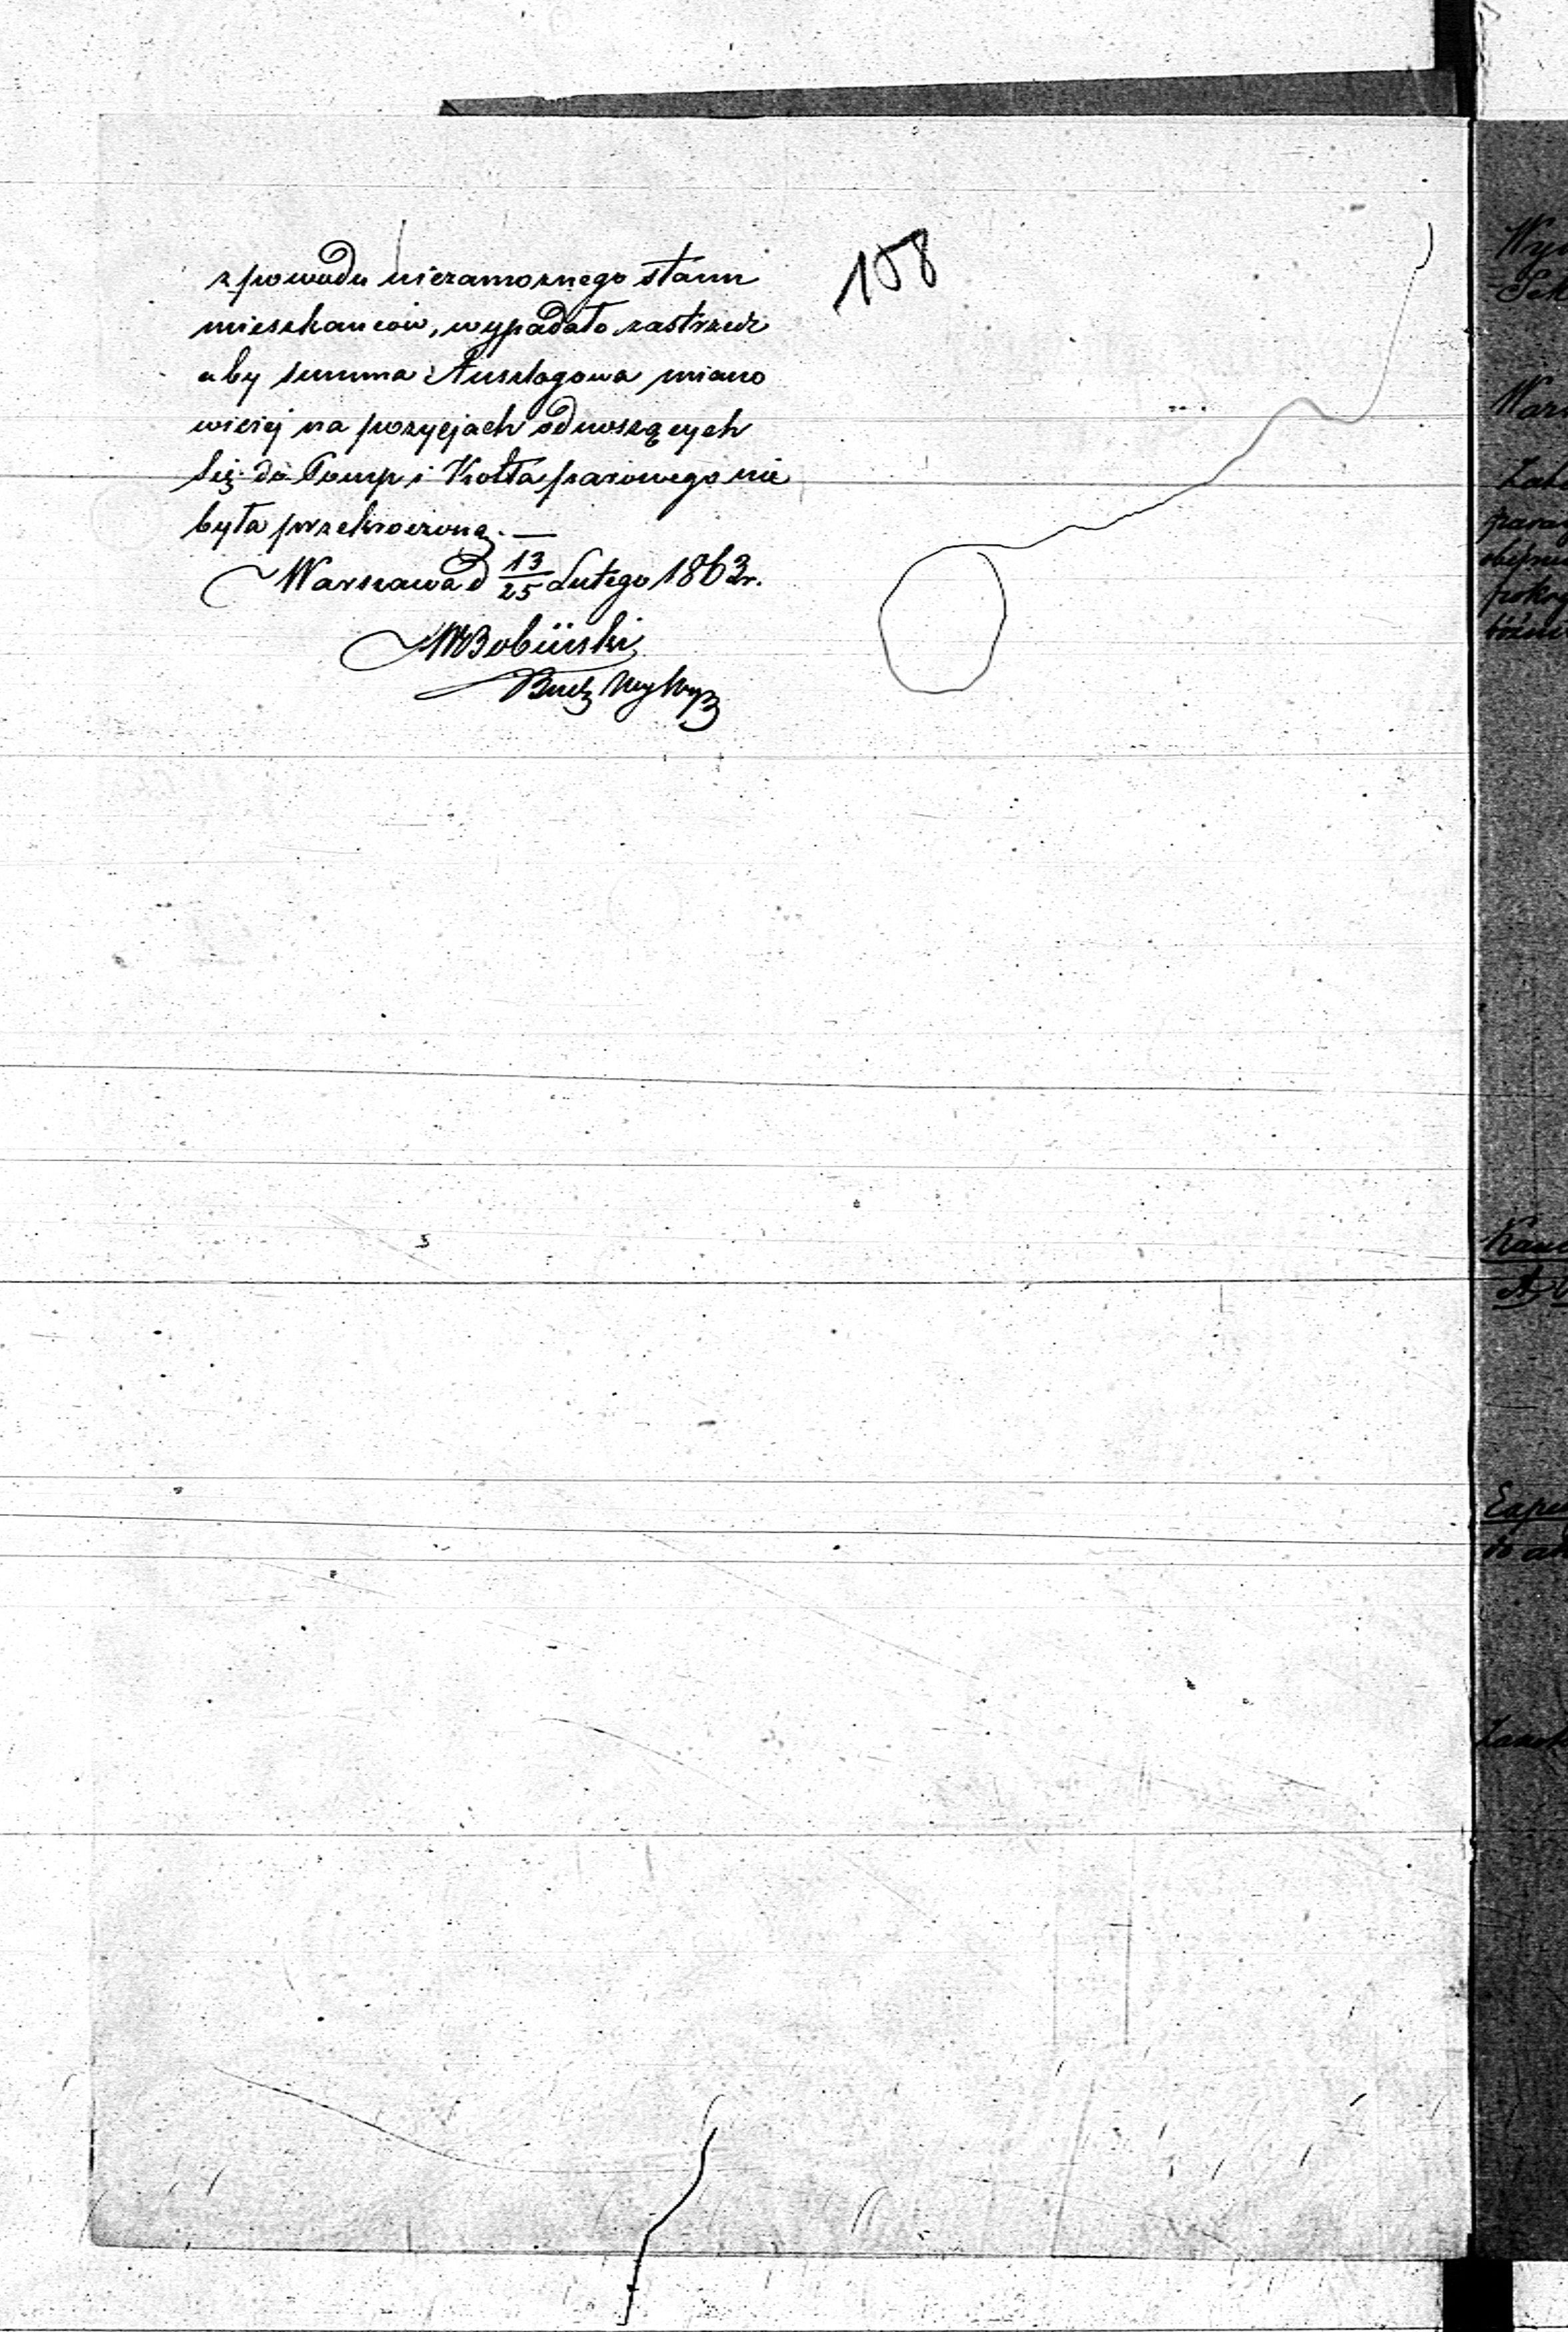 z powodu niezamożnego stanu
mieszkańców, wypadało zastrzedz
aby summa Anszlagowa miano
wiciej na pozycjach odnoszących
się do Pomp i Kotła parowego nie
była przekroczoną. —
Warszawa d 13/25 Lutego 1863 r.
Bobiński
Bud
158
Wy
Sek
War
para
pokry
Exp
do a